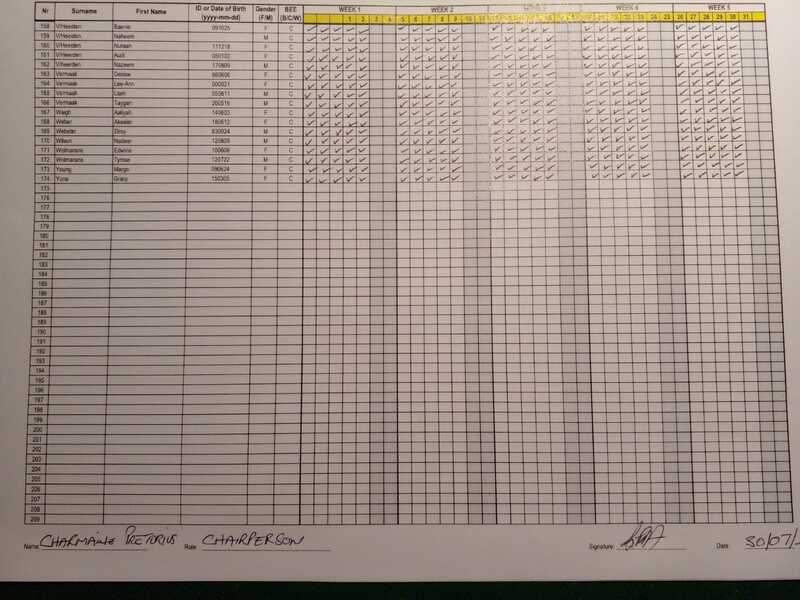 Nr Surname First Name ID or Date of Birth (yyyy-mm-dd) Gender (F/M) BEE (B/C/W) WEEK 1 WEEK 2 WEEK 4 WEEK 5
1 2 3 4 5 6 7 8 9 10 26 27 28 29 30 31
158 V/Heerden 091025 F C
159 V/Heerden Naheem M C
160 V/Heerden Nuraan 111218 F C
161 V/Heerden Audi 050102 F C
162 V/heerden Nazeem 170809 M C
163 Vermaak Denise 660606 F C
164 Vermaak Lee-Ann 000921 F C
165 Vermaak Liam 050611 M C
166 Vermaak Taygan 200515 M C
167 Waigh Aaliyah 140603 F C
168 Weber Akeeler 180612 F C
169 Webster Elroy 830924 M C
170 Wilson Nadeer 120809 M C
171 Wolmarans Edwina 100608 F C
172 Wolmarans Tymise 120722 M C
173 Young Margo 090624 F C
174 Yunai Gracy 150305 F C
175
176
177
178
179
180
181
182
183
184
185
186
187
188
189
190
191
192
193
194
195
196
197
198
199
200
201
202
203
204
205
206
207
208
209
Name: CHARMAINE PRETORIUS Role: CHAIRPERSON Signature: Date: 30/07/